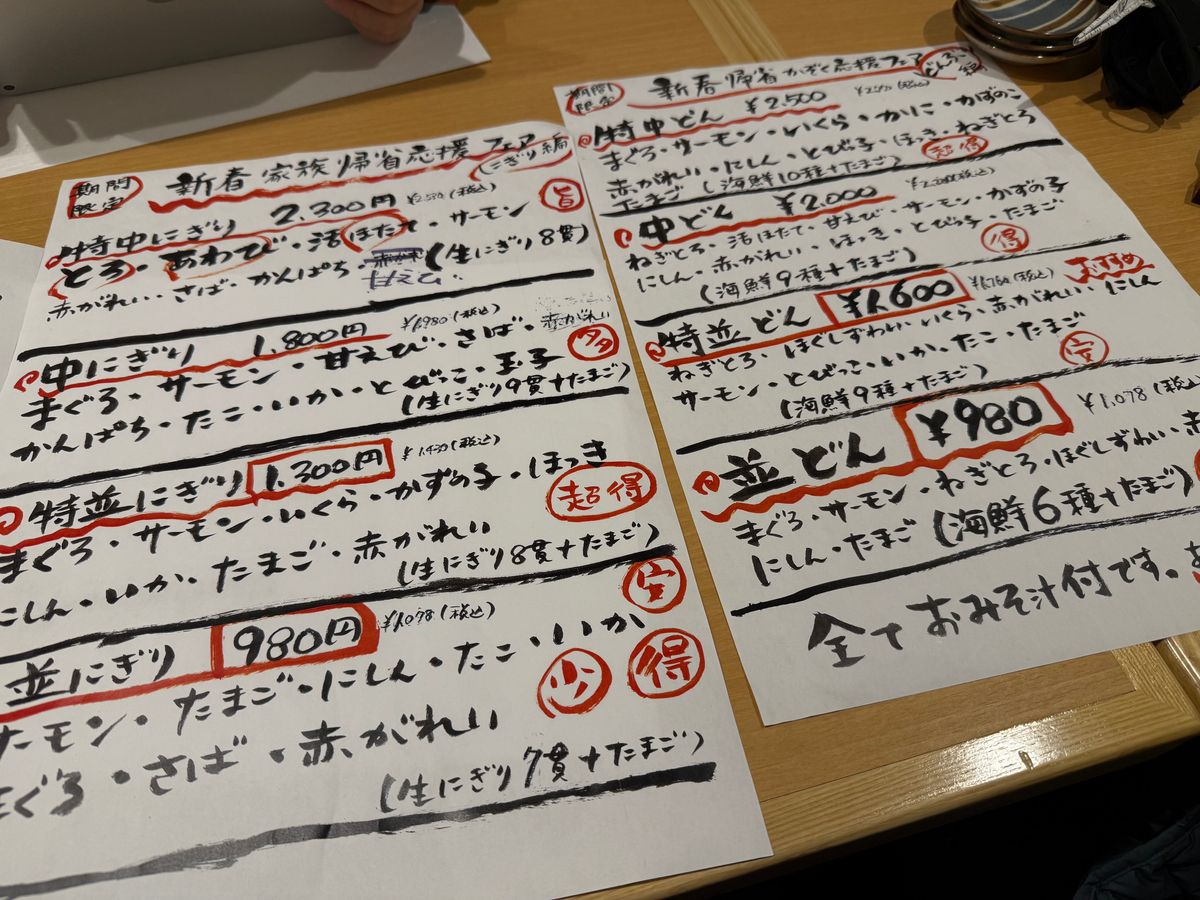 期間限定
新春家族帰省応援フェア
(にぎり編)
特中にぎり 2.300円 (税込) 旨
とろ・あわび・活ほたて・サーモン
赤がれい・さば・かんぱち・甘えび (生にぎり8貫)
中にぎり 1.800円 ¥1,980(税込)
まぐろ・サーモン・甘えび・さば・赤がれい
かんぱち・たこ・いか・とびっこ・玉子 多
(生にぎり9貫+たまご)
特並にぎり 1.300円 ¥1,430(税込)
まぐろ・サーモン・いくら・かずの子・ほっき
にしん・いか・たまご・赤がれい 超得
(生にぎり8貫+たまご)
安
並にぎり 980円 ¥1,078(税込)
サーモン・たまご・にしん・たこ・いか
まぐろ・さば・赤がれい 少 得
(生にぎり7貫+たまご)
期間限定
新春帰省かぞく応援フェア
どんぶり編
特中どん ¥2.500 (税込)
まぐろ・サーモン・いくら・かに・かずのこ
赤がれい・にしん・とびっ子・ほっき・ねぎとろ
たまご (海鮮10種+たまご) 超得
中どん ¥2.000 ¥2,200(税込)
ねぎとろ・活ほたて・甘えび・サーモン・かずの子
にしん・赤がれい・ほっき・とびっ子・たまご
(海鮮9種+たまご) 得
特並どん ¥1.600 ¥1,760(税込) おすすめ
ねぎとろ・ほぐしずわい・いくら・赤がれい・にしん
サーモン・とびっこ・いか・たこ・たまご
(海鮮9種+たまご) 安
並どん ¥980 ¥1,078(税込)
まぐろ・サーモン・ねぎとろ・ほぐしずわい・赤
にしん・たまご (海鮮6種+たまご)
全ておみそ汁付です。